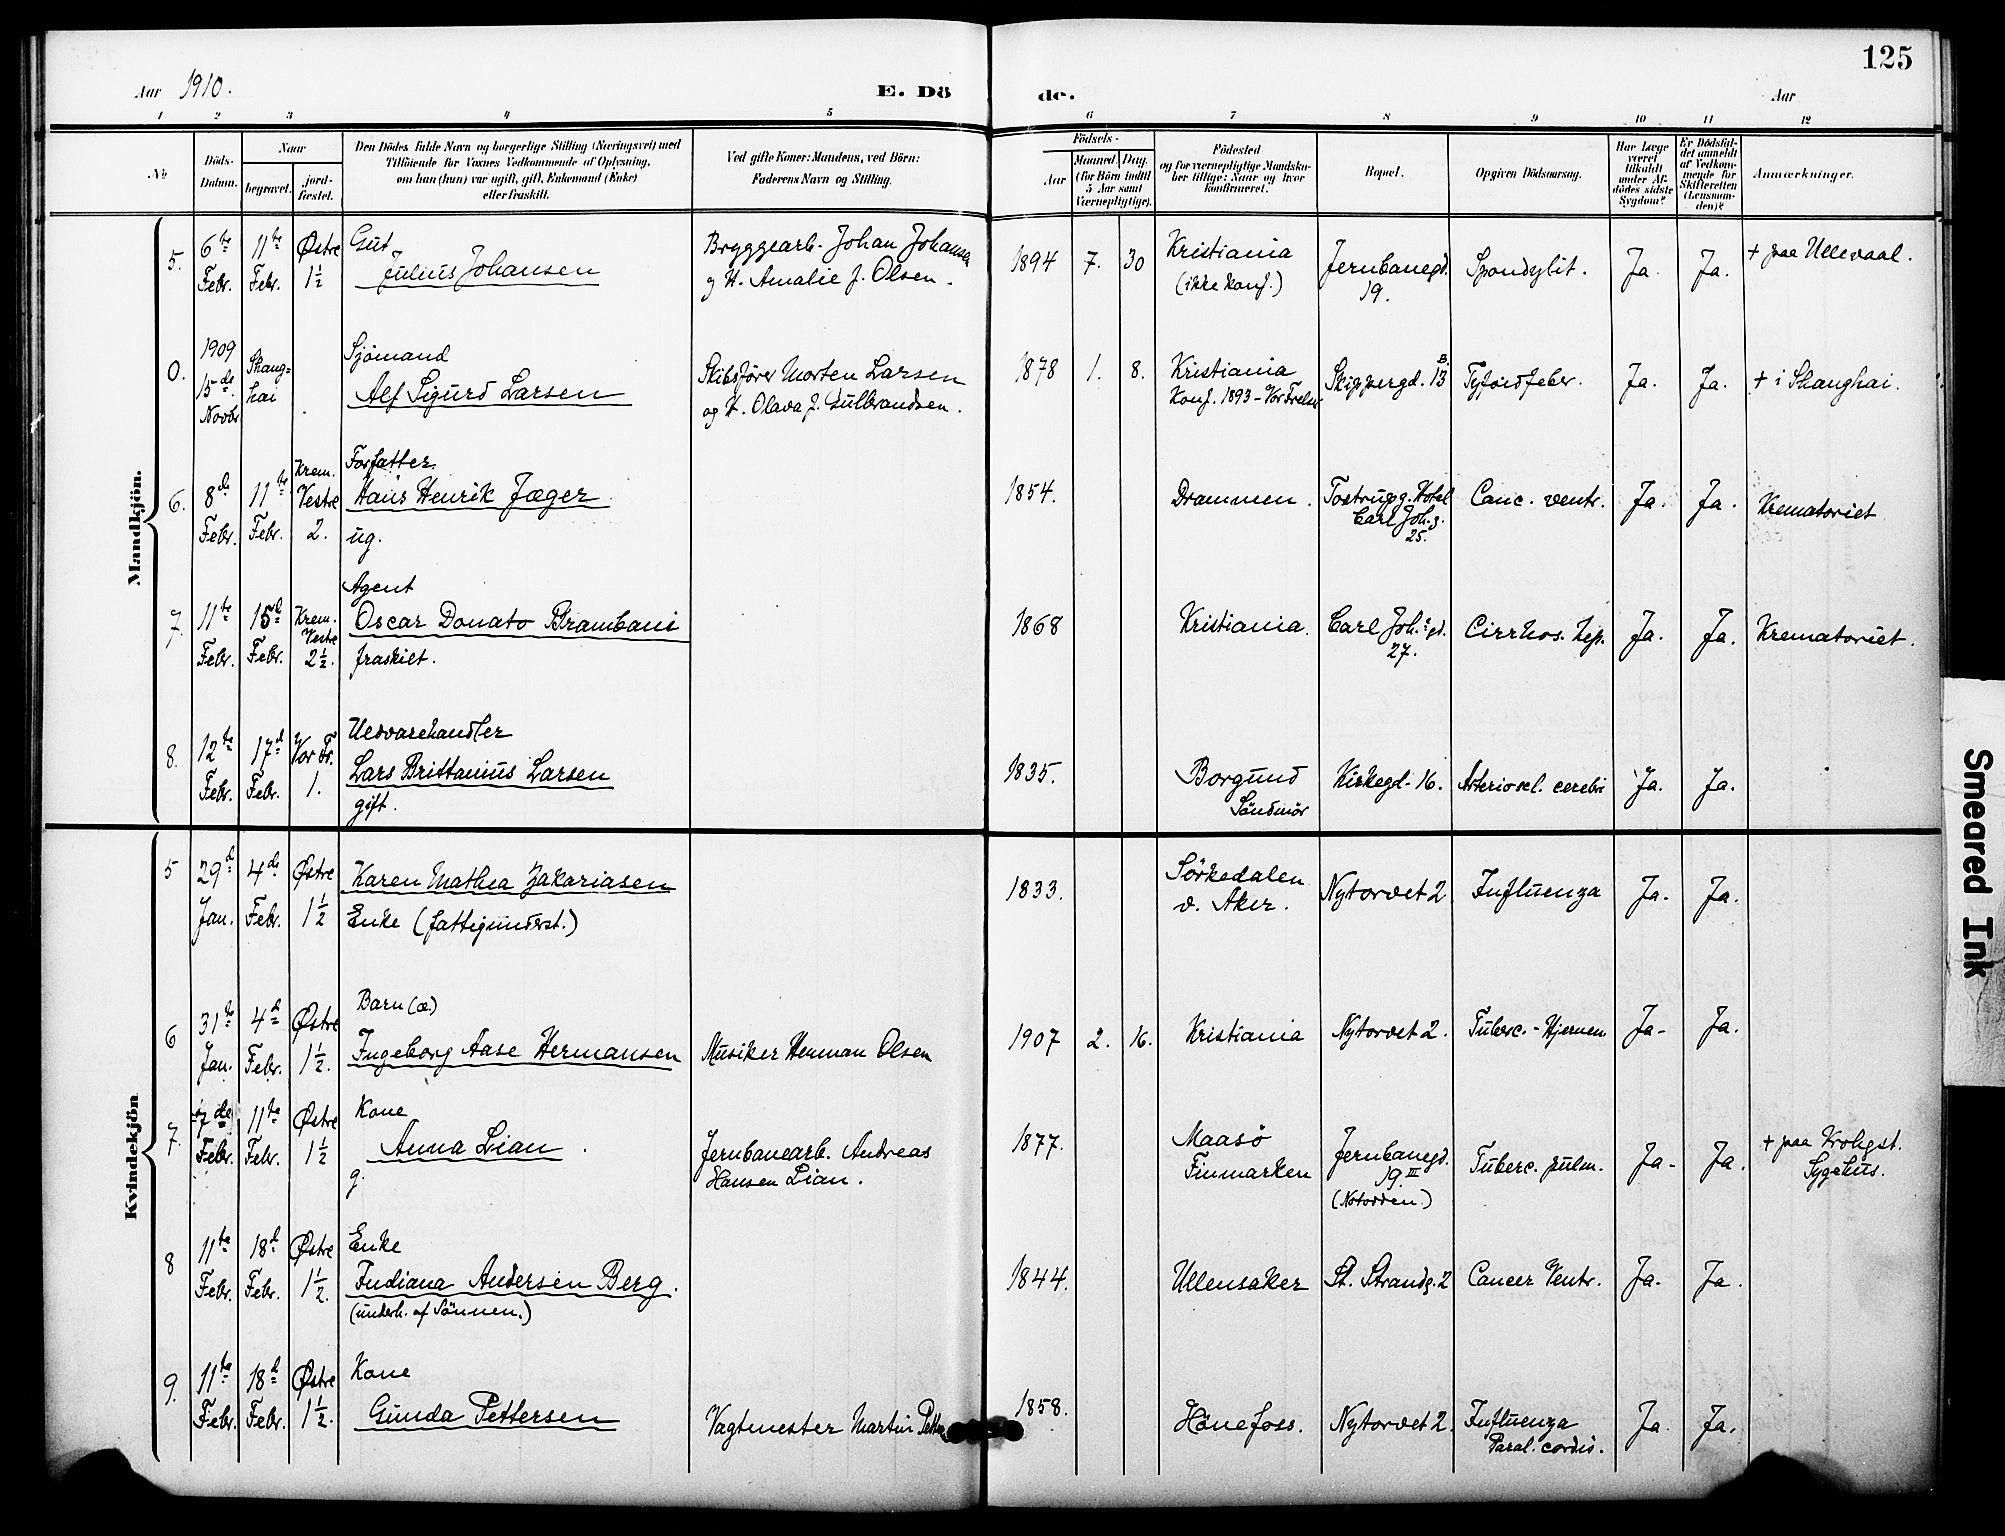 125
Aar 1910.
E. Dö
de.
Aar
1 2 3 4 5 6 7 8 9 10 11 12
No
Döds-Datum.
Naar
begravet.
jord-fæstet.
Den Dödes fulde Navn og borgerlige Stilling (Næringsvei) med
Tilföiende for Voxnes Vedkommende af Oplysning,
om han (hun) var ugift, gift, Enkemand (Enke)
eller fraskilt.
Ved gifte Koner: Mandens, ved Börn:
Faderens Navn og Stilling.
Födsels-
Aar
Maaned. Dag.
(for Börn indtil
5 Aar samt
Værnepligtige).
Födested
og for værnepligtige Mandska-
ber tillige: Naar og hvor
konfirmeret.
Bopæl.
Opgiven Dödsaarsag.
Har Læge
været
tilkaldt
under Af-
dödes sidste
Sygdom?
Er Dödsfal-
det anmeldt
af Vedkom-
mende for
Skifteretten
(Lensman-
den)?
Anmærkninger.
Mandkjön.
5. 6te Febr. 11te Febr. Østre 1½
Gut
Julius Johansen
Bryggearb. Johan Johansen
og H. Amalie f. Olsen.
1894 7. 30
Kristiania
(ikke konf.)
Jernbanegd.
19.
Spondylit. Ja. Ja. + paa Ullevaal.
0. 1909 15de Novbr Shang-hai
Sjömand
Alf Sigurd Larsen
Skibsförer Morten Larsen
og H. Olava f. Gulbrandsen.
1878 1. 8.
Kristiania
Konf. 1893 - Vor Frelser
Skippergd. 13 Tyfoidfeber. Ja. Ja. + i Shanghai.
6. 8de Febr. 11te Febr. Krem. Vestre 2.
Forfatter
Hans Henrik Jæger
ug.
1854. Drammen.
Tostrupg. Hotel
Carl Joh. g.
25.
Canc. ventr. Ja. Ja. Krematoriet
7. 11te Febr. 15d Febr. Krem. Vestre 2½.
Agent
Oscar Donato Brambani
fraskilt.
1868 Kristiania.
Carl Joh.s gd.
27.
Cirrhos. hep. Ja. Ja. Krematoriet.
8. 12te Febr. 17d Febr. Vor Fr. 1.
Uldvarehandler
Lars Brittanius Larsen
gift.
1835.
Borgund
Söndmör
Kirkegd. 16. Arterioscl. cerebri Ja. Ja.
Kvindekjön
5 29d Jan. 4de Febr. Østre 1½
Karen Mathea Zakariasen
Enke (fattigunderst.)
1833.
Sörkedalen
v. Aker.
Nytorvet 2 Influenza Ja. Ja.
6 31te Jan. 4d Febr. Østre 1½.
Barn (æ.)
Ingeborg Aase Hermansen
Musiker Herman Olsen
1907 2. 16. Kristiania Nytorvet 2. Tuberc. - Hjernen Ja- Ja.
7. 7de Febr. 11te Febr. Østre 1½
Kone
Anna Lian
g.
Jernbanearb. Andreas
Hansen Lian.
1877.
Maasö
Finmarken
Jernbanegd.
19 III
(Notodden)
Tuberc. pulm. Ja- Ja.
+ paa Krohgst.
Sygehus.
8 11te Febr. 18d Febr. Østre 1½.
Enke
Indiana Andersen Berg.
(underh. af Sönnen.)
1844. Ullensaker St. Strandg. 2 Cancer Ventr. Ja. Ja.
9. 11te Febr. 18d Febr. Østre 1½.
Kone
Gunda Pettersen
Vagtmester Martin
1858. Hönefoss. Nytorvet 2.
Influenza
Paral. cordis.
Ja. Ja.
Smeared Ink